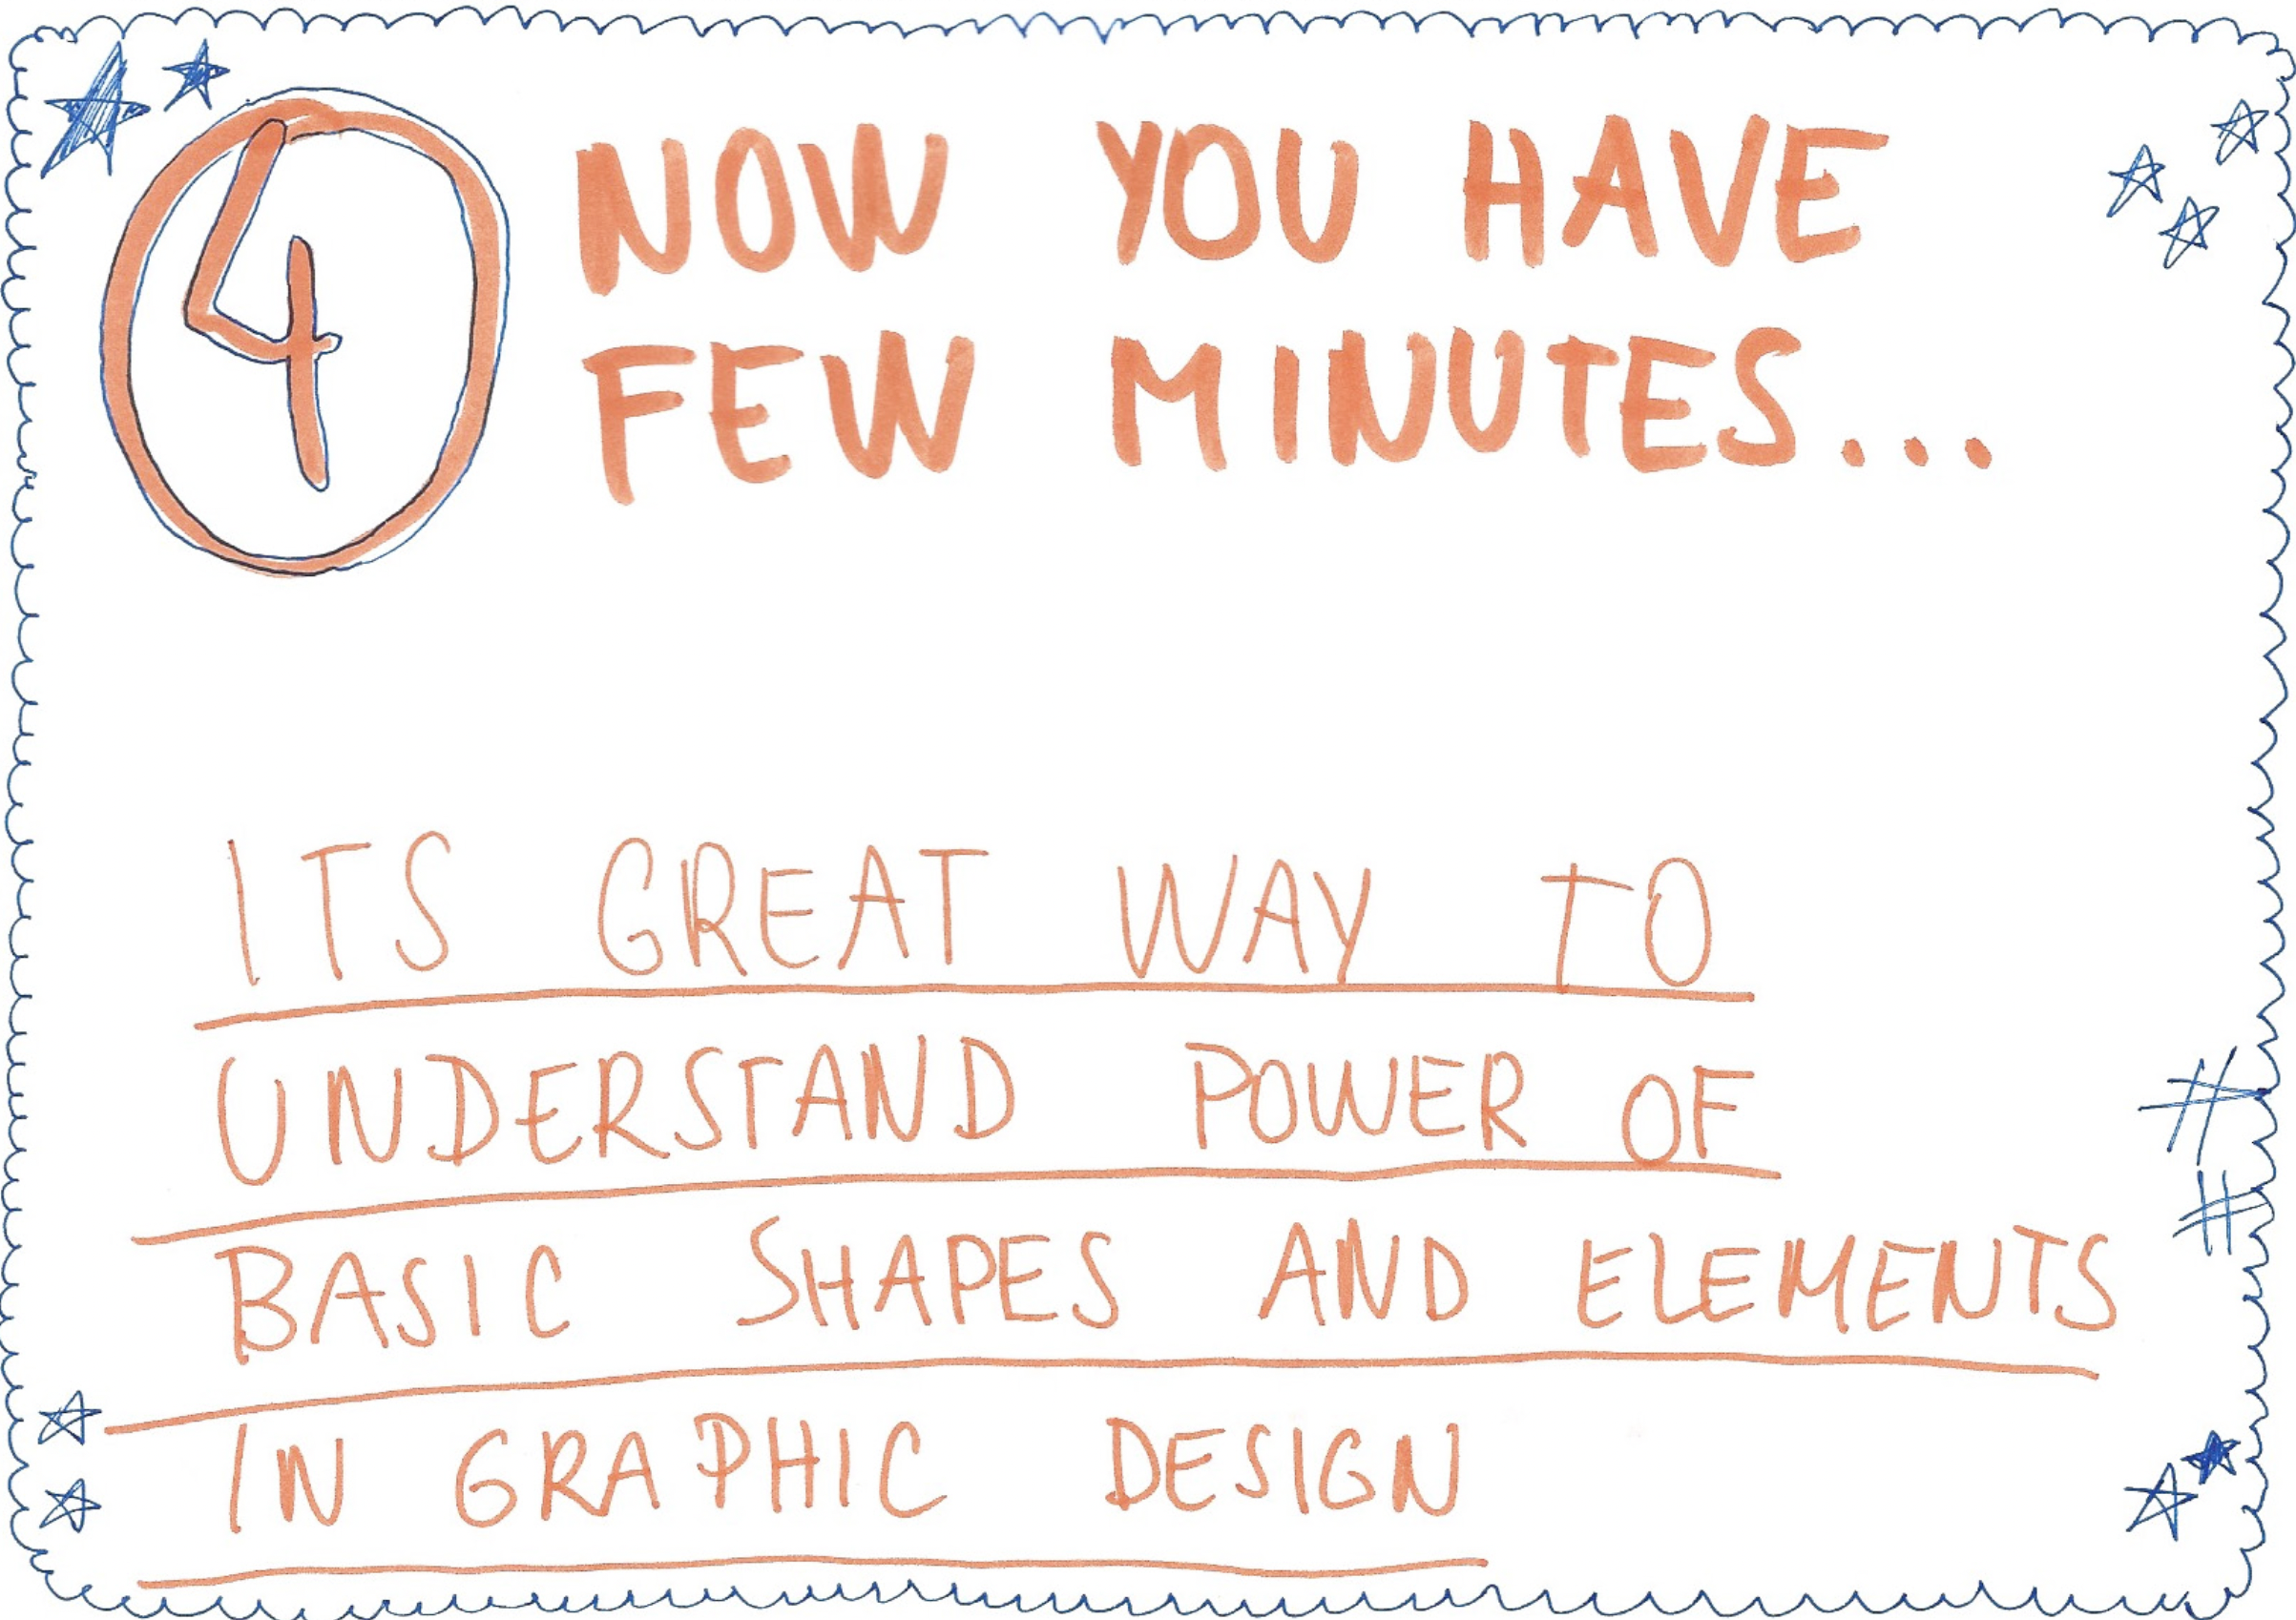 4
NOW YOU HAVE
FEW MINUTES...
ITS GREAT WAY TO
UNDERSTAND POWER OF
BASIC SHAPES AND ELEMENTS
IN GRAPHIC DESIGN
#
#